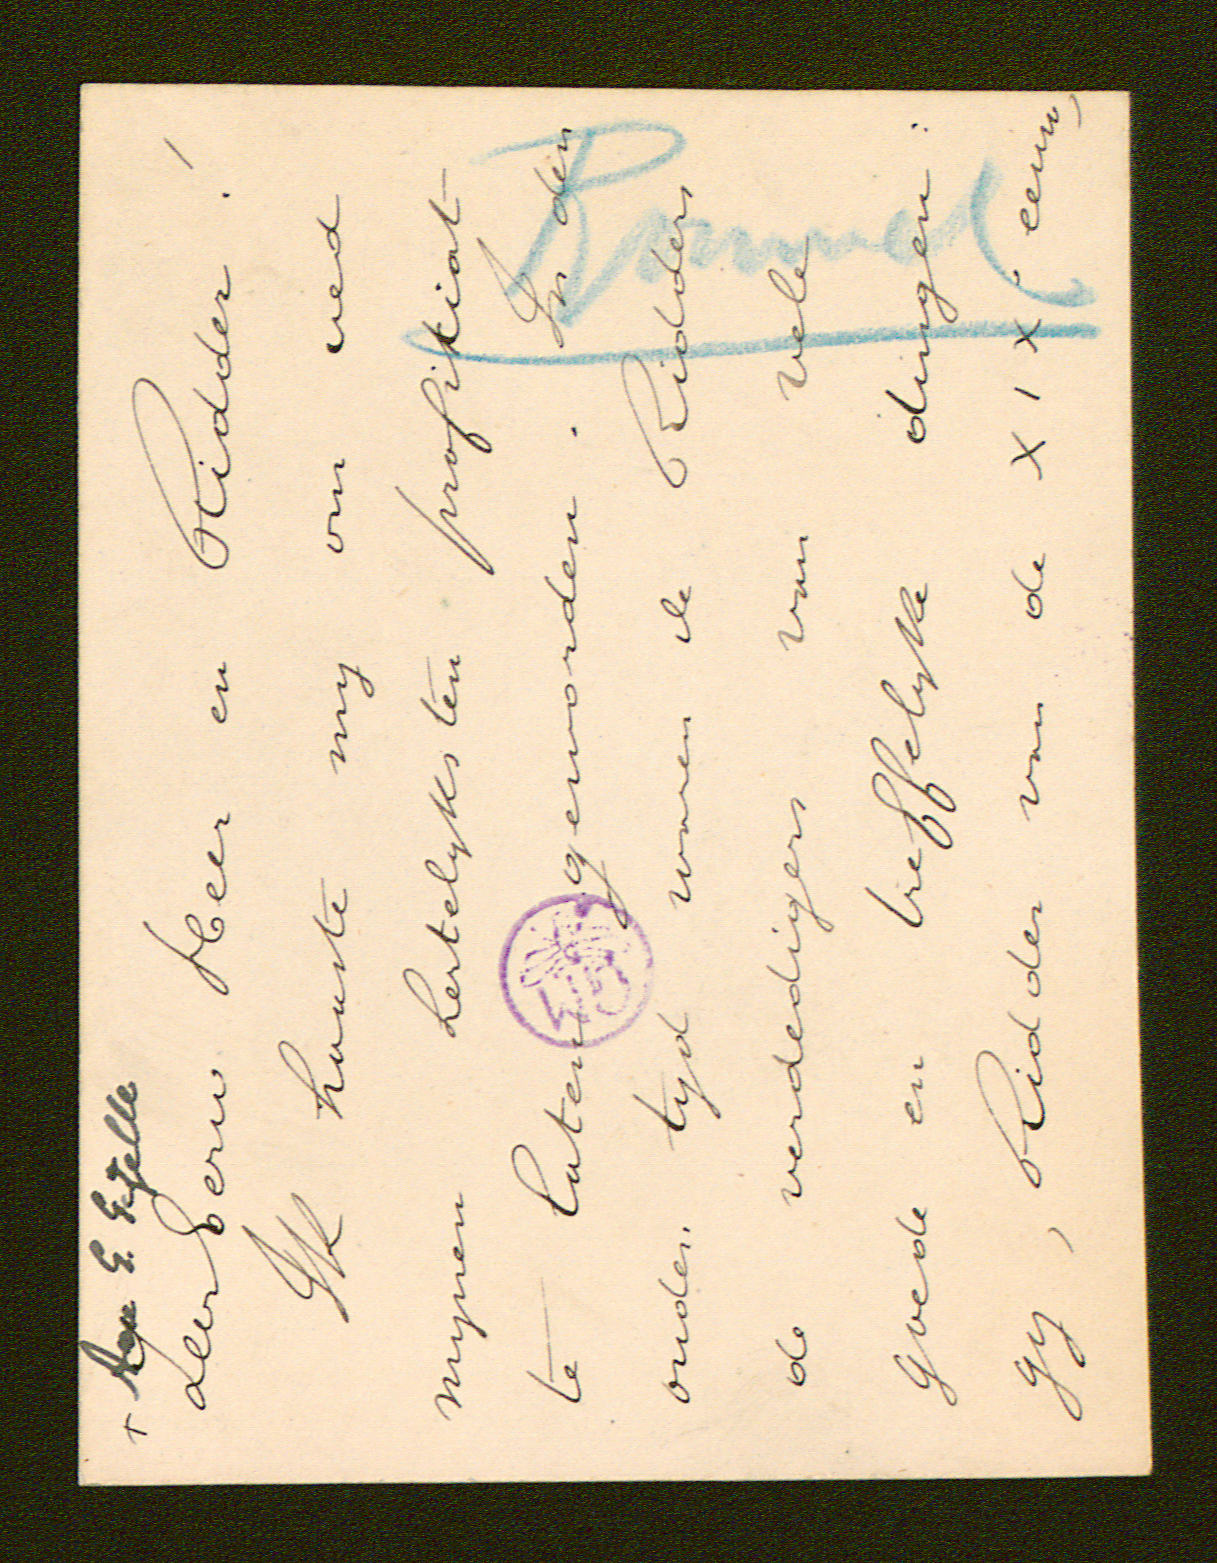 + Aan G. Gezelle
Zeer Eerw Heer en Ridder!
Ik haaste my om ued
mynen hertelyksten profitiat
te laten geworden. In den
ouden tyd waren de Ridders
de verdedigers van vele
goede en treffelyke dingen:
gy, Ridder van de XIXe eeuw,
Rommel